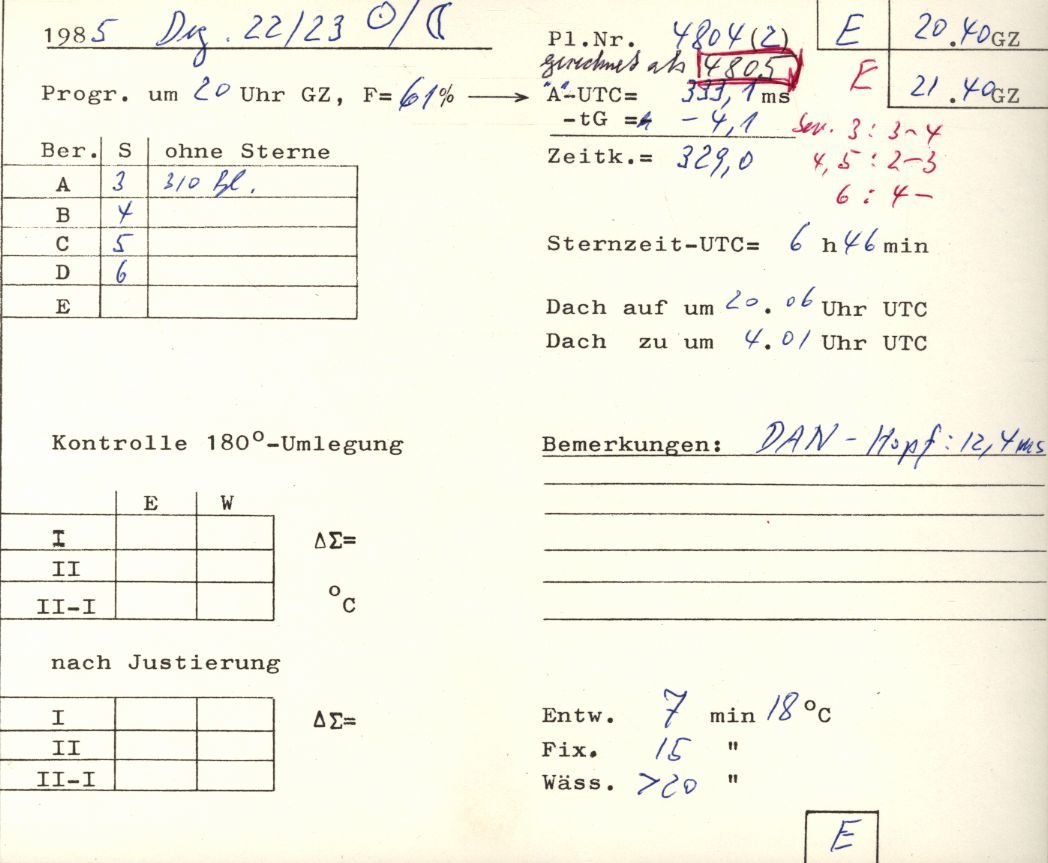 1985 Dez. 22/23 ☉/☾
Pl.Nr. 4804(2) E 20.40 GZ
gerechnet als 4805 E 21.40 GZ
Progr. um 20 Uhr GZ, F= 61% → "A"-UTC= 333,1 ms
-tG = - 4,1
Zeitk.= 329,0
3 : 3-4
4,5 : 2-3
6 : 4-
Ber. S ohne Sterne
A 3 310 Bl.
B 4
C 5
D 6
E
Sternzeit-UTC= 6 h 46 min
Dach auf um 20.06 Uhr UTC
Dach zu um 4.01 Uhr UTC
Kontrolle 180°-Umlegung
E W
I ΔΣ=
II
II-I °C
Bemerkungen: DAN - Hopf: 12,4 ms
nach Justierung
I ΔΣ=
II
II-I
Entw. 7 min 18 °C
Fix. 15 "
Wäss. >20 "
E